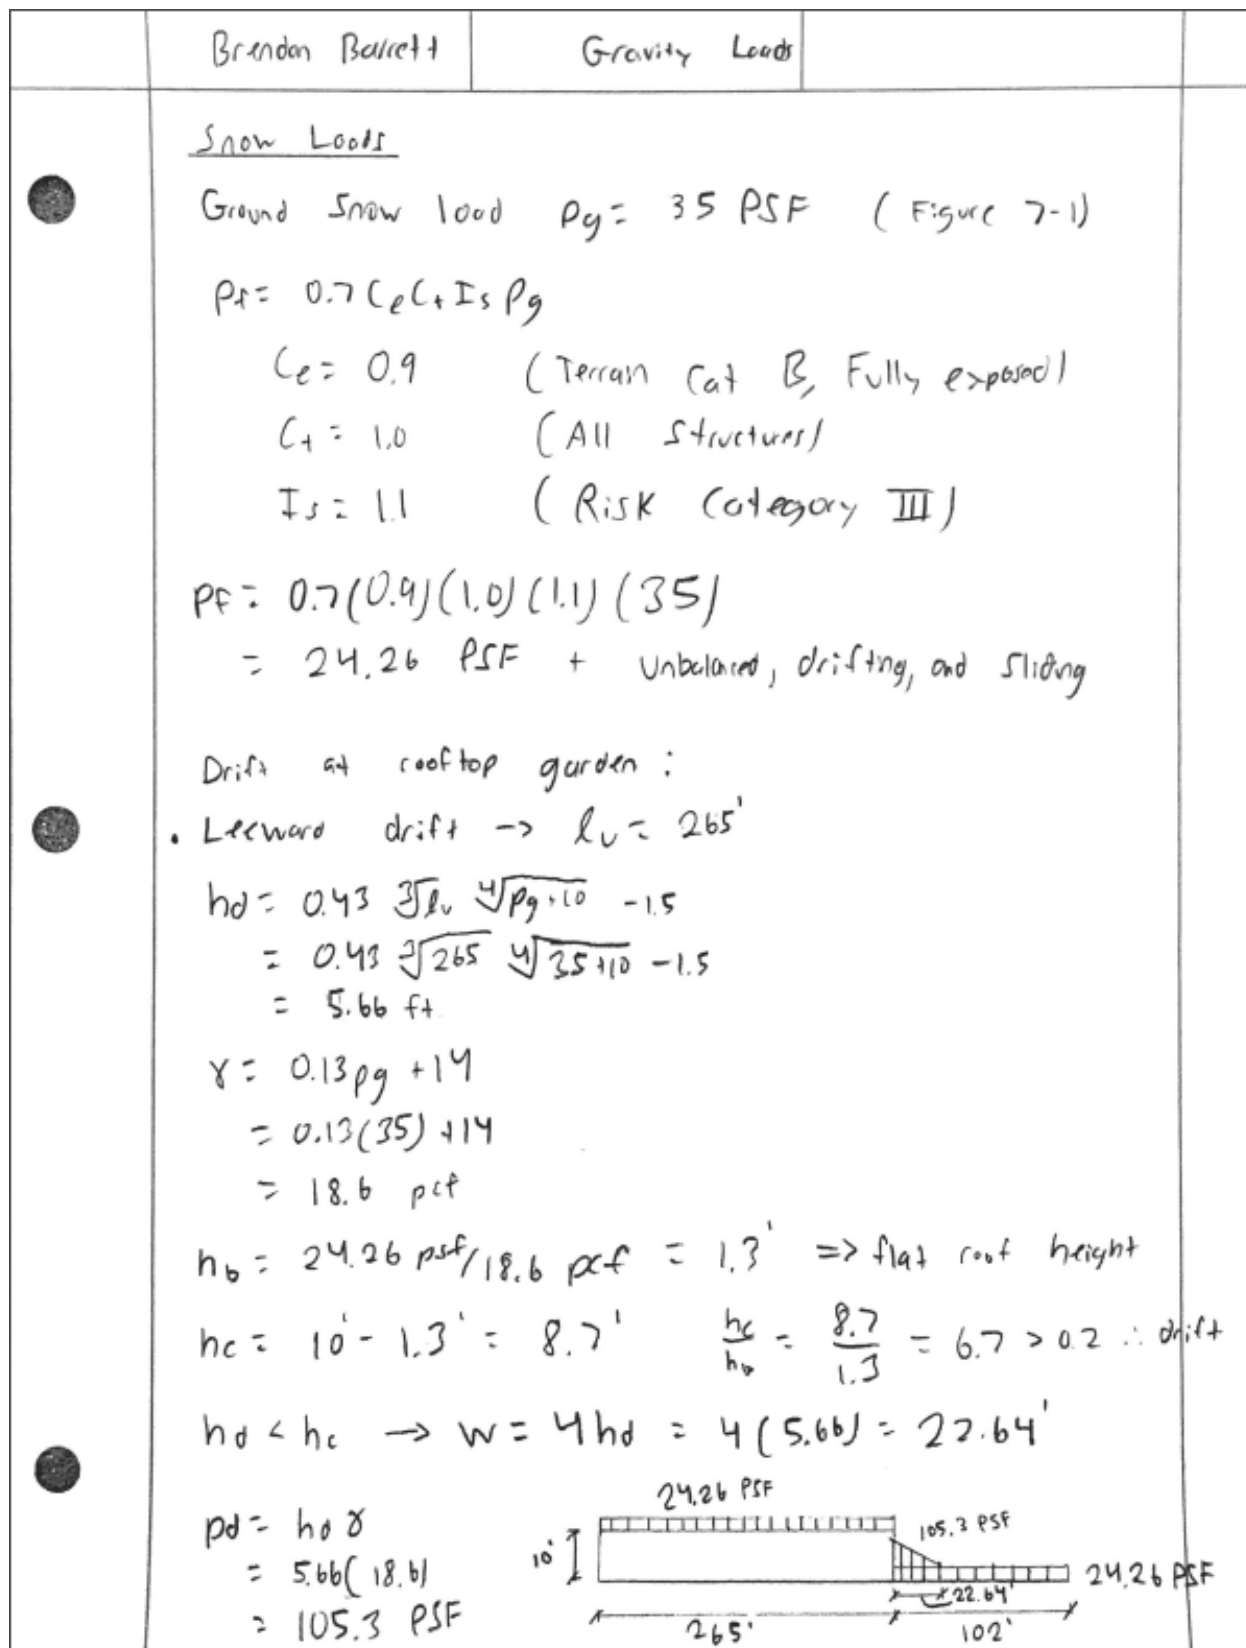 Brendan Barrett Gravity Loads
Snow Loads
Ground Snow load Pg = 35 PSF (Figure 7-1)
Pf = 0.7 Ce Ct Is Pg
Ce = 0.9 (Terrain Cat B, Fully exposed)
Ct = 1.0 (All Structures)
Is = 1.1 (Risk Category III)
PF = 0.7(0.9)(1.0)(1.1)(35)
= 24.26 PSF + Unbalanced, drifting, and Sliding
Drift at rooftop garden:
• Leeward drift → lu = 265'
hd = 0.43 ∛lu ∜pg+10 -1.5
= 0.43 ∛265 ∜35+10 -1.5
= 5.66 ft
γ = 0.13pg +14
= 0.13(35) +14
= 18.6 pcf
hb = 24.26 psf/18.6 pcf = 1.3' => flat roof height
hc = 10' - 1.3' = 8.7' hc/hb = 8.7/1.3 = 6.7 > 0.2 ∴ drift
hd < hc → w = 4hd = 4(5.66) = 22.64'
pd = hd γ
= 5.66(18.6)
= 105.3 PSF
24.26 PSF
105.3 PSF
10'
24.26 PSF
22.64'
265' 102'